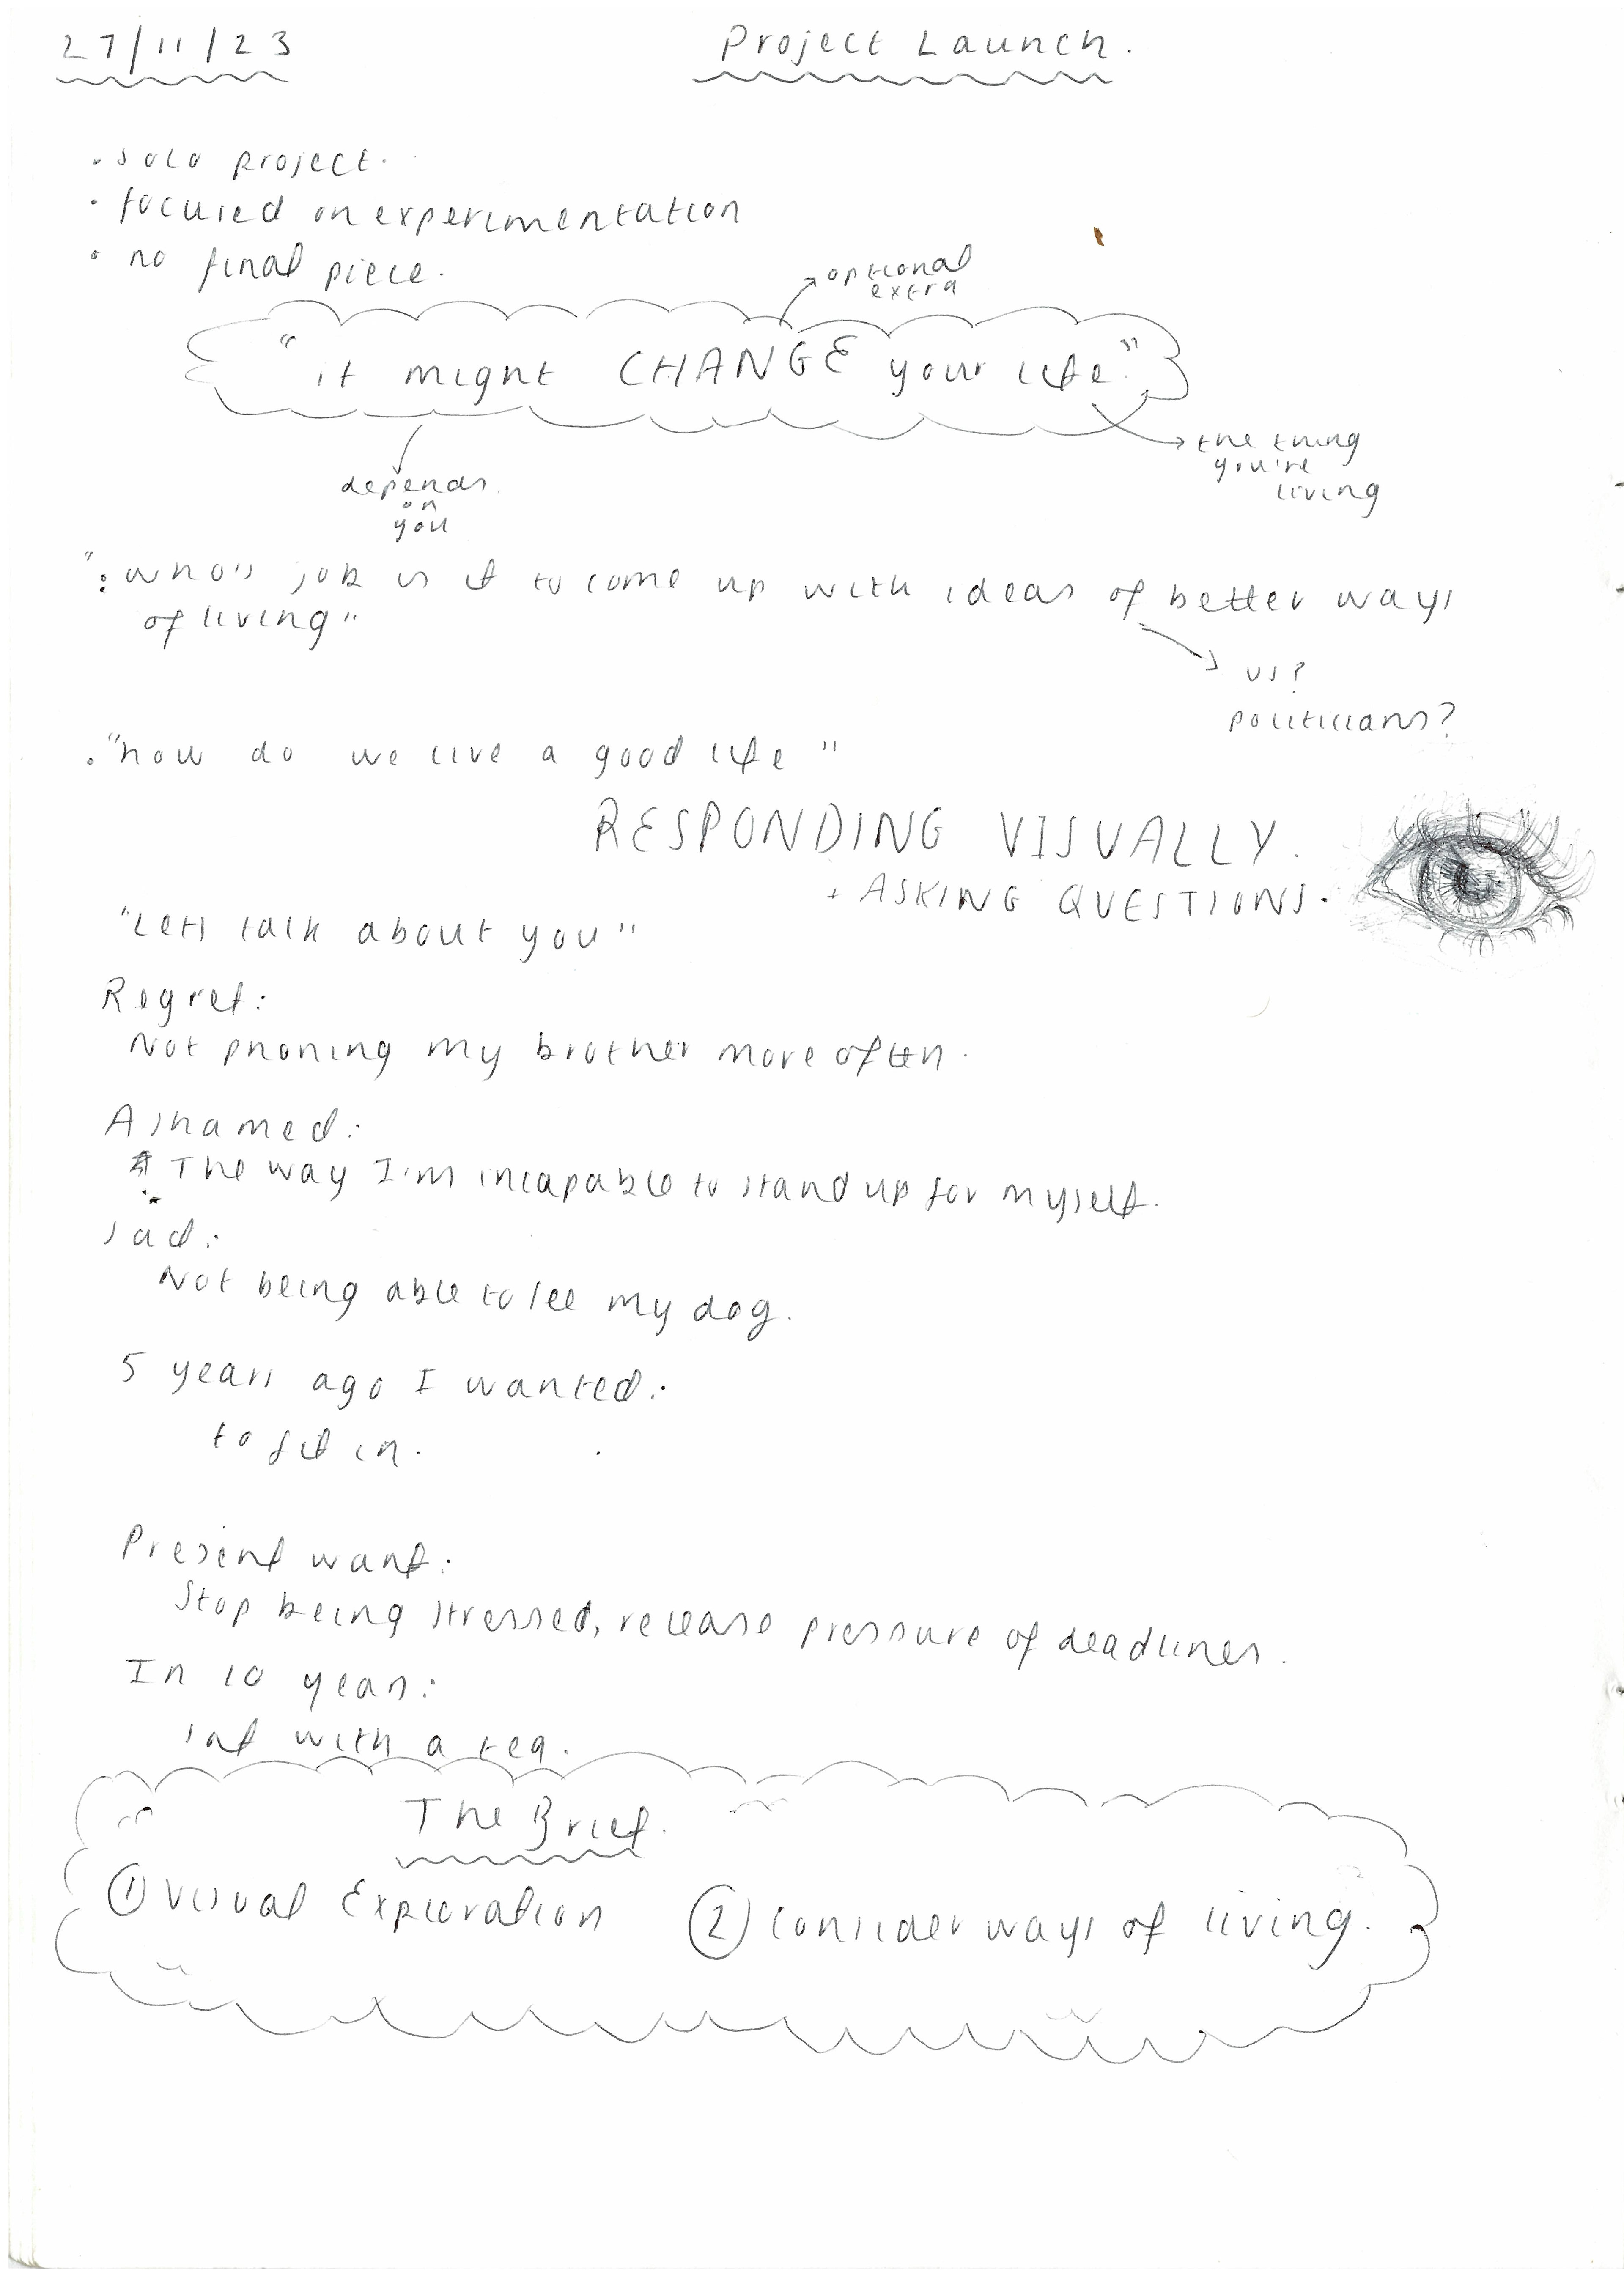 27/11/23
Project Launch.
· solo project.
· focused on experimentation
· no final piece.
optional
extra
"it might CHANGE your life."
the thing
you're
living
depends
on
you
": who's job is it to come up with ideas of better ways
of living"
us?
politicians?
· "how do we live a good life"
RESPONDING VISUALLY.
+ ASKING QUESTIONS.
"Lets talk about you"
Regret:
Not phoning my brother more often.
Ashamed:
The way I'm incapable to stand up for myself.
Sad:
Not being able to see my dog.
5 years ago I wanted:
to fit in.
Present want:
Stop being stressed, release pressure of deadlines.
In 10 years:
sat with a tea.
The Brief.
① Visual Exploration ② Consider ways of living.